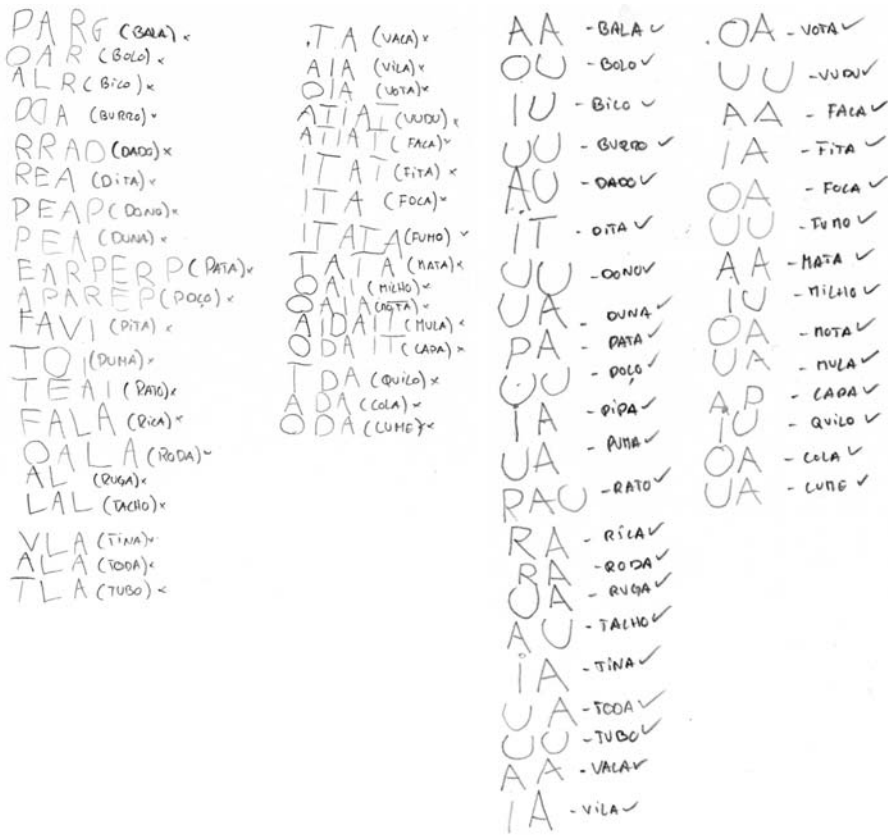 PARG (BALA) x
OAR (BOLO) x
ALR (BICO) x
OCA (BURRO) x
RRAO (DADO) x
REA (DITA) x
PEAP (DONO) x
PEA (DUNA) x
EARPERP (PATA) x
APAREP (POÇO) x
FAVI (PITA) x
TOI (PUMA) x
TEAI (RATO) x
FALA (RICA) x
OALA (RODA) x
AL (RUGA) x
LAL (TACHO) x
VLA (TINA) x
ALA (TODA) x
TLA (TUBO) x
.TA (VACA) x
AIA (VILA) x
OIA (VOTA) x
ATIAT (VUDU) x
ATIAT (FACA) x
ITAT (FITA) x
ITA (FOCA) x
ITATA (FUMO) x
TATA (MATA) x
OAI (MILHO) x
OAIA (MOTA) x
AIDAIT (MULA) x
ODAIT (CAPA) x
TDA (QUILO) x
ADA (COLA) x
ODA (CUME) x
AA - BALA ✓
OU - BOLO ✓
IU - BICO ✓
UU - BURRO ✓
AU - DADO ✓
IT - DITA ✓
UU - DONO ✓
UA - DUNA ✓
PA - PATA ✓
UU - POÇO ✓
IA - PIPA ✓
UA - PUMA ✓
RAU - RATO ✓
RA - RICA ✓
RA - RODA ✓
UA - RUGA ✓
AU - TALHO ✓
IA - TINA ✓
UA - TODA ✓
UU - TUBO ✓
AA - VACA ✓
IA - VILA ✓
.OA - VOTA ✓
UU - VUDU ✓
AA - FACA ✓
IA - FITA ✓
OA - FOCA ✓
UU - FUMO ✓
AA - MATA ✓
IU - MILHO ✓
OA - MOTA ✓
UA - MULA ✓
AP - CAPA ✓
IU - QUILO ✓
OA - COLA ✓
UA - CUME ✓